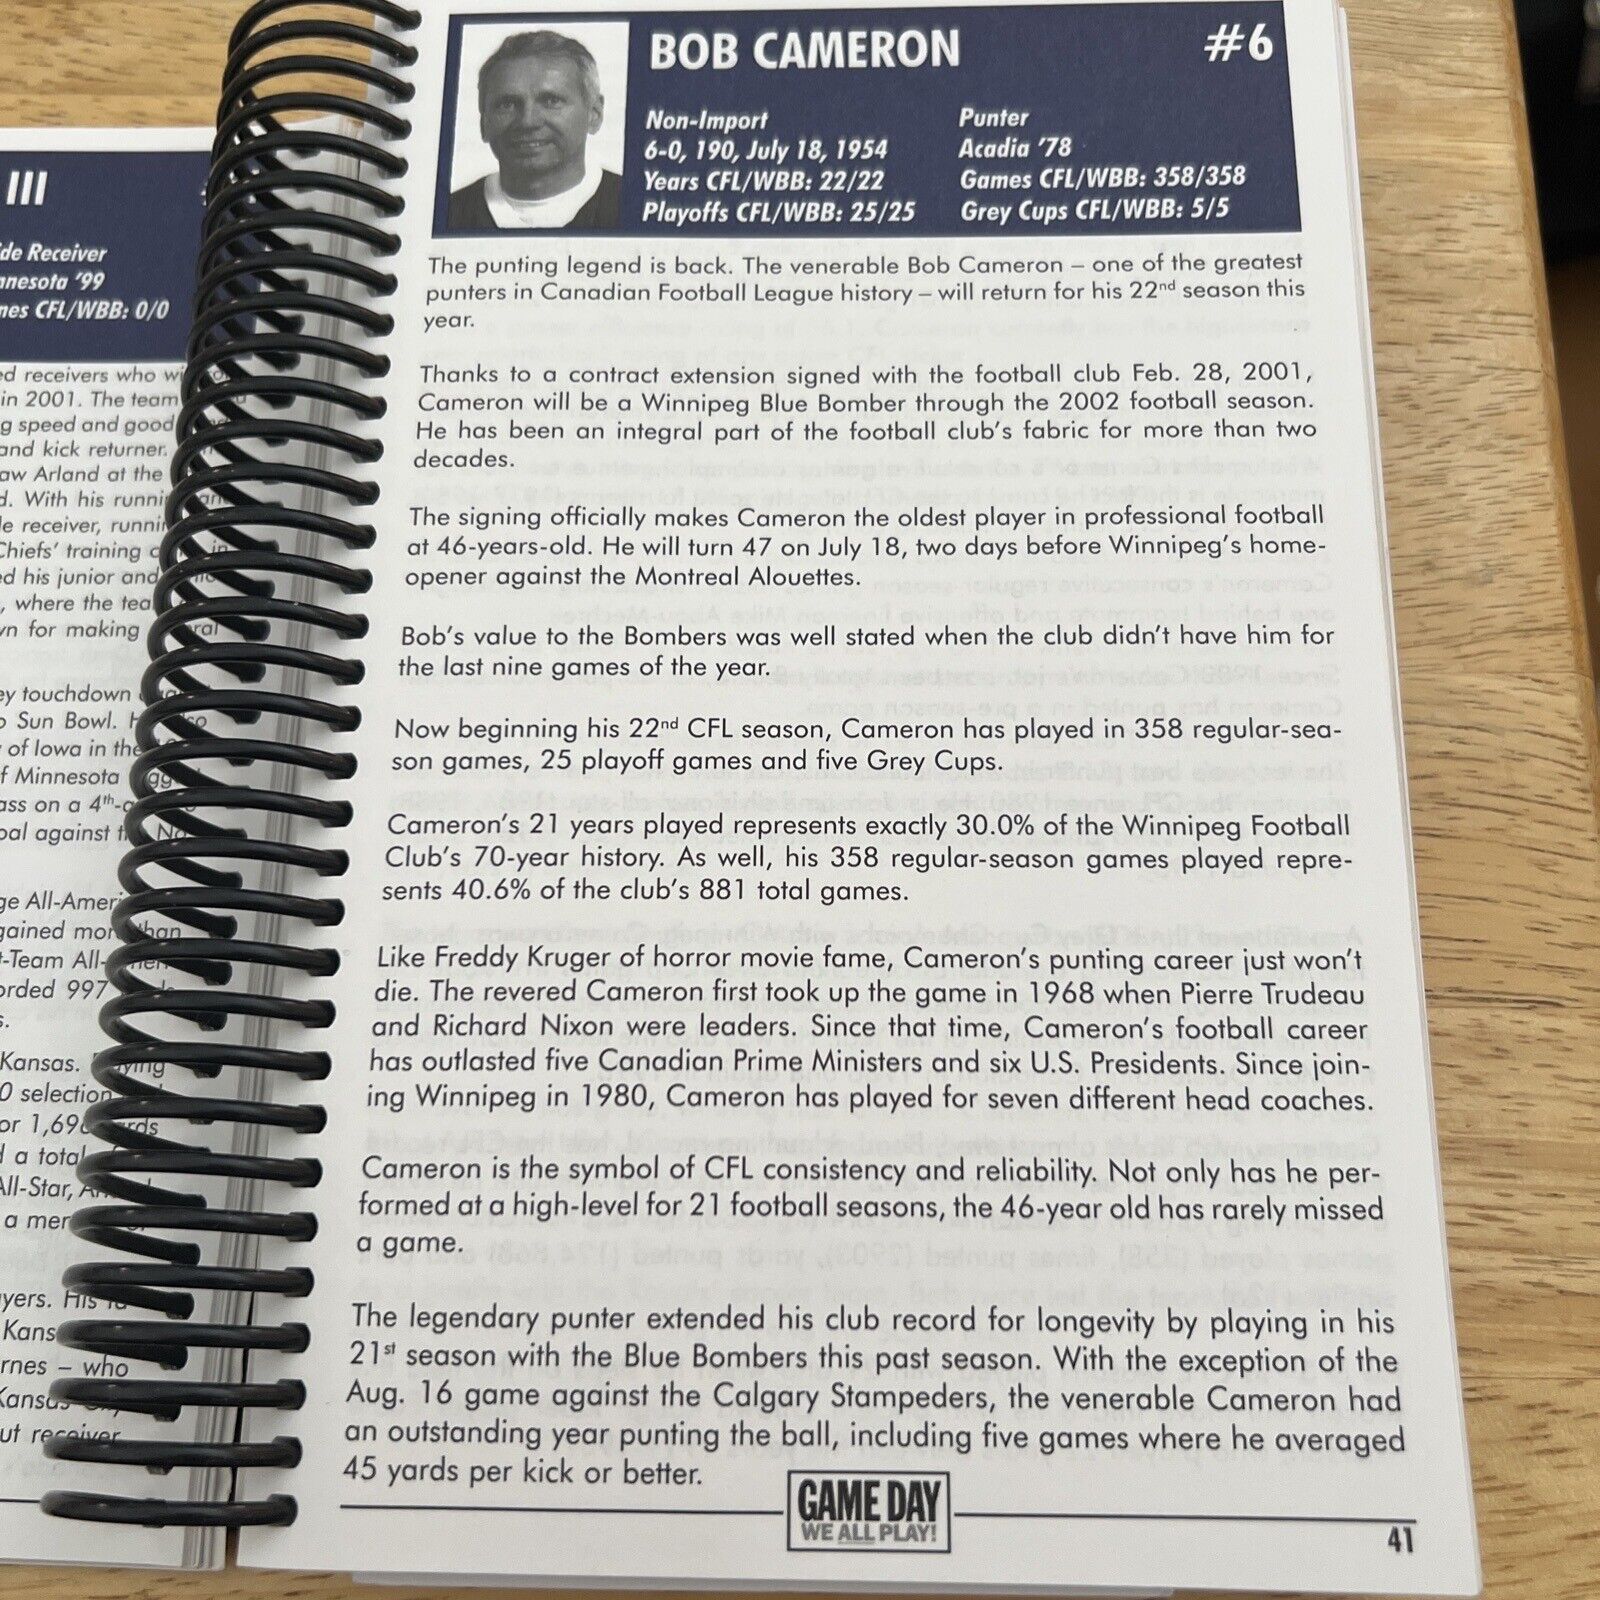 III
de Receiver
nnesota '99
nes CFL/WBB: 0/0
ed receivers who
in 2001. The team
g speed and good
and kick returner.
aw Arland at the
d. With his
le receiver,
Chiefs' training
ed his junior and
, where the
n for making
ey touchdown
o Sun Bowl.
of Iowa in the
f Minnesota
ass on a 4th-
oal against
ge All-Ameri
gained more than
t-Team All-
orded 997
s.
Kansas.
0 selection
or 1,69
d a total
All-Star,
a mem
yers. His
Kans
rnes – who
ut receiver
BOB CAMERON
#6
Non-Import
6-0, 190, July 18, 1954
Years CFL/WBB: 22/22
Playoffs CFL/WBB: 25/25
Punter
Acadia '78
Games CFL/WBB: 358/358
Grey Cups CFL/WBB: 5/5
The punting legend is back. The venerable Bob Cameron – one of the greatest
punters in Canadian Football League history – will return for his 22nd season this
year.
Thanks to a contract extension signed with the football club Feb. 28, 2001,
Cameron will be a Winnipeg Blue Bomber through the 2002 football season.
He has been an integral part of the football club's fabric for more than two
decades.
The signing officially makes Cameron the oldest player in professional football
at 46-years-old. He will turn 47 on July 18, two days before Winnipeg's home-
opener against the Montreal Alouettes.
Bob's value to the Bombers was well stated when the club didn't have him for
the last nine games of the year.
Now beginning his 22nd CFL season, Cameron has played in 358 regular-sea-
son games, 25 playoff games and five Grey Cups.
Cameron's 21 years played represents exactly 30.0% of the Winnipeg Football
Club's 70-year history. As well, his 358 regular-season games played repre-
sents 40.6% of the club's 881 total games.
Like Freddy Kruger of horror movie fame, Cameron's punting career just won't
die. The revered Cameron first took up the game in 1968 when Pierre Trudeau
and Richard Nixon were leaders. Since that time, Cameron's football career
has outlasted five Canadian Prime Ministers and six U.S. Presidents. Since join-
ing Winnipeg in 1980, Cameron has played for seven different head coaches.
Cameron is the symbol of CFL consistency and reliability. Not only has he per-
formed at a high-level for 21 football seasons, the 46-year old has rarely missed
a game.
The legendary punter extended his club record for longevity by playing in his
21st season with the Blue Bombers this past season. With the exception of the
Aug. 16 game against the Calgary Stampeders, the venerable Cameron had
an outstanding year punting the ball, including five games where he averaged
45 yards per kick or better.
GAME DAY
WE ALL PLAY!
41